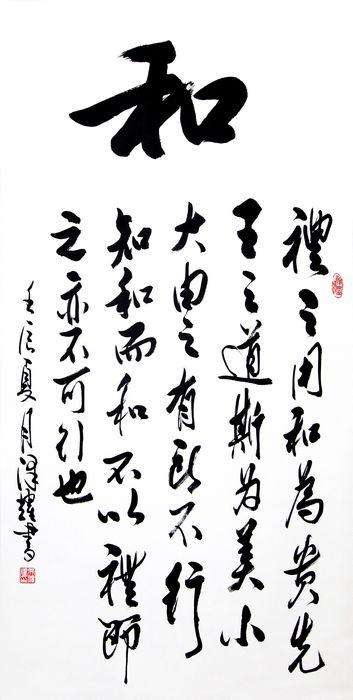 和
禮之用和為貴先
王之道斯為美小
大由之有所不行
知和而和不以禮節
之亦不可行也
壬辰夏月 書